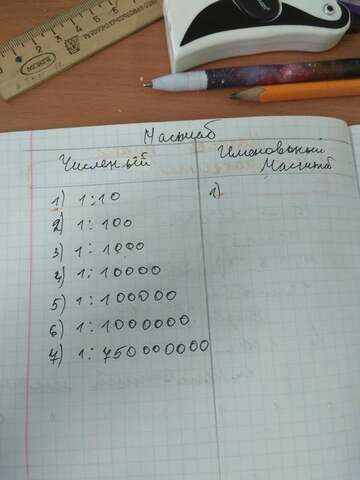 Масштаб
Численый
Именованый
Масштаб
1) 1:10
1)
2) 1:100
3) 1:1000
4) 1:10000
5) 1:100000
6) 1:1000000
7) 1:750000000